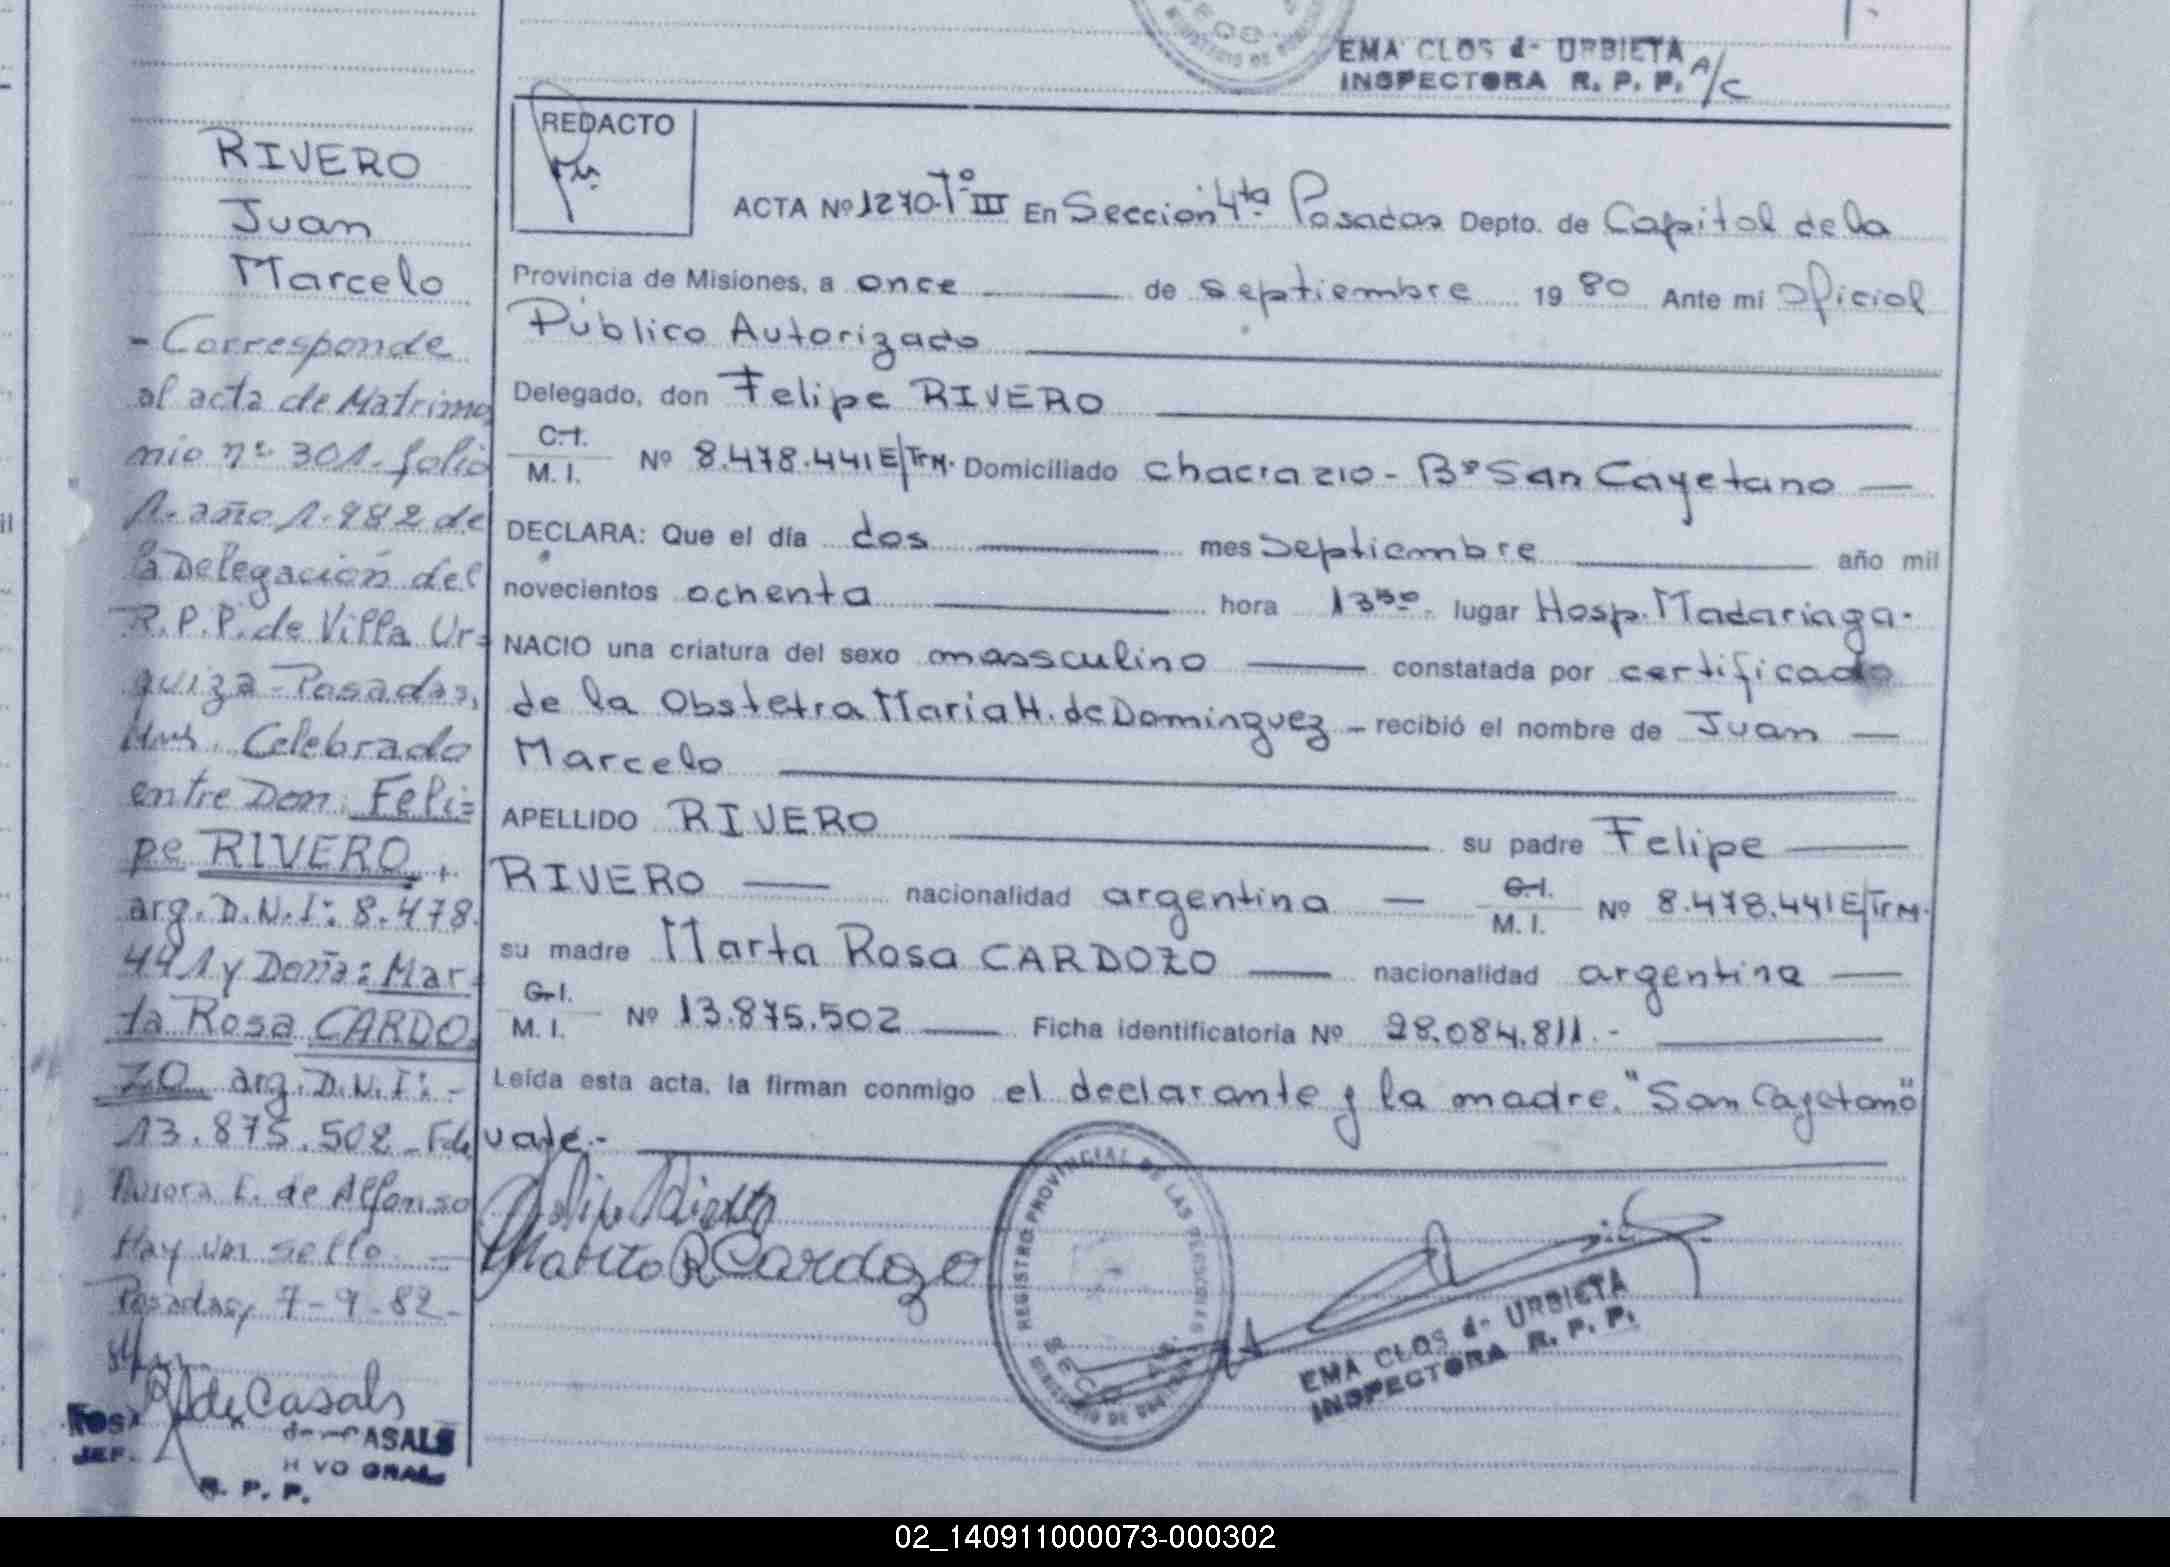 EMA CLOS de URBIETA
INSPECTORA R. P. P. A/C
REDACTO
RIVERO
Juan
Marcelo
- Corresponde
al acta de Matrimo
nio nº 301. folio
1. año 1.982 de
la Delegación del
R.P.P. de Villa Ur=
quiza - Posadas,
Mnes. Celebrado
entre Don: Feli=
pe RIVERO,
arg. D.N.I: 8.478.
441 y Doña: Mar
ta Rosa CARDO
ZO arg. D.N.I: -
13.875.502 - Fdo
Aurora E. de Alfonso
Hay un sello. —
Posadas, 7-9-82-
R de Casals
de CASALS
R. P. P.
ACTA Nº 1270 Tº III En Seccion 4ta Posadas Depto. de Capital de la
Provincia de Misiones, a once de septiembre 1980 Ante mi Oficial
Público Autorizado
Delegado, don Felipe RIVERO
C.I.
M. I. Nº 8.478.441 E/Trm. Domiciliado chacra 210 - Bº San Cayetano —
DECLARA: Que el día dos mes Septiembre año mil
novecientos ochenta hora 13⁵⁰. lugar Hosp. Madariaga.
NACIO una criatura del sexo massculino — constatada por certificado
de la Obstetra Maria H. de Dominguez - recibió el nombre de Juan —
Marcelo
APELLIDO RIVERO su padre Felipe —
RIVERO — nacionalidad argentina — C.I.
M. I. Nº 8.478.441 E/Trm.
su madre Marta Rosa CARDOZO — nacionalidad argentina —
C.I.
M. I. Nº 13.875.502 — Ficha identificatoria Nº 28.084.811.-
Leída esta acta, la firman conmigo el declarante y la madre. "San Cayetano"
vale.-
Marta R Cardozo
REGISTRO PROVINCIAL DE LAS PERSONAS
EMA CLOS de URBIETA
INSPECTORA R. P. P.
02_140911000073-000302